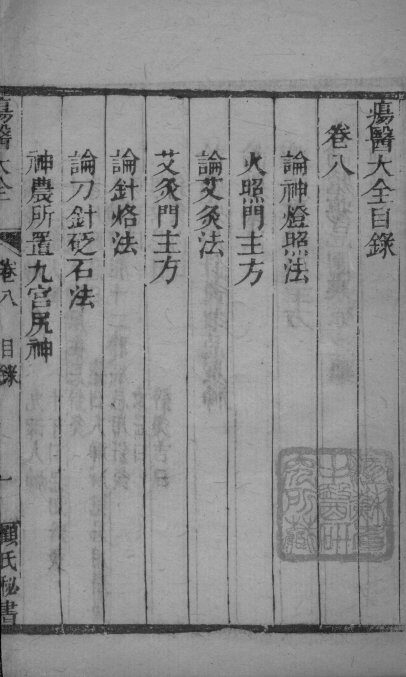 瘍醫大全目錄
卷八
論神燈照法
火照門主方
論艾灸法
艾灸門主方
論針烙法
論刀針砭石法
神農所置九宮尻神
瘍醫大全
卷八 目錄
一
顧氏秘書